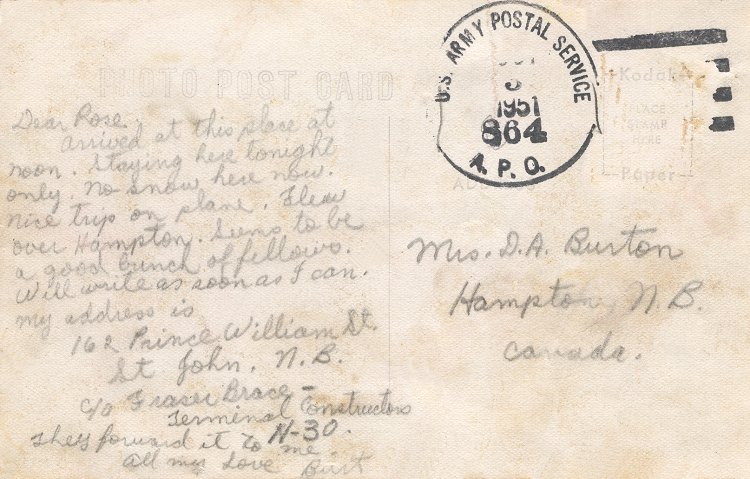 PHOTO POST CARD
Dear Rose.
Arrived at this place at
noon. Staying here tonight
only. no snow here now.
nice trip on plane. Flew
over Hampton. Seems to be
a good bunch of fellows.
Will write as soon as I can.
my address is
162 Prince William St.
St John, N.B.
c/o Fraser Brace –
Terminal Constructors
N-30.
They forward it to me
all my Love Burt
U.S. ARMY POSTAL SERVICE
3
1951
864
A.P.O.
Kodak
PLACE
STAMP
HERE
Paper
Mrs. D.A. Burton
Hampton, N.B.
Canada.